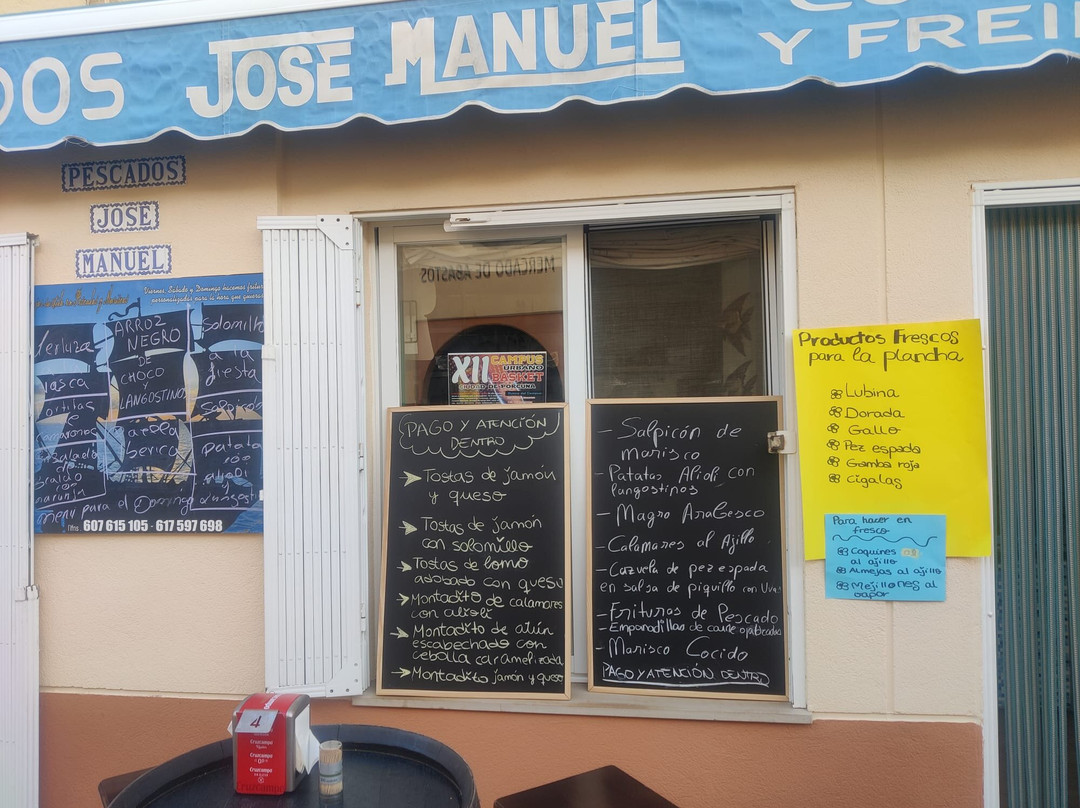 DOS JOSE MANUEL
Y FREI
PESCADOS
JOSE
MANUEL
Viernes, Sabado y Domingo hacemos fritur
personalizadas para ti hora que quieras
ARROZ
NEGRO
DE
CHOCO
Y
LANGOSTINOS
Solomillo
a la
Salpicón
patata
menu para el Domingo
607 615 105 - 617 597 698
MERCADO DE ABASTOS
XII CAMPUS
URBANO
BASKET
PAGO Y ATENCIÓN
DENTRO
Tostas de jamón
y queso
Tostas de jamón
con solomillo
Tostas de lomo
adobado con queso
Montadito de calamares
con alioli
Montadito de atún
escabechado con
cebolla caramelizada
Montadito jamón y queso
- Salpicón de
marisco
- Patatas Alioli con
langostinos
- Magro Arabesco
- Calamares al Ajillo
- Cazuela de pez espada
en salsa de piquillo con Uva
- Frituras de Pescado
- Empanadillas de carne
- Marisco Cocido
PAGO Y ATENCIÓN DENTRO
Productos Frescos
para la plancha
Lubina
Dorada
Gallo
Pez espada
Gamba roja
Cigalas
Para hacer en
fresco
Coquines
al ajillo
Almejas al ajillo
Mejillones al
vapor
4
Cruzcampo
Cruzcampo
Cruzcampo